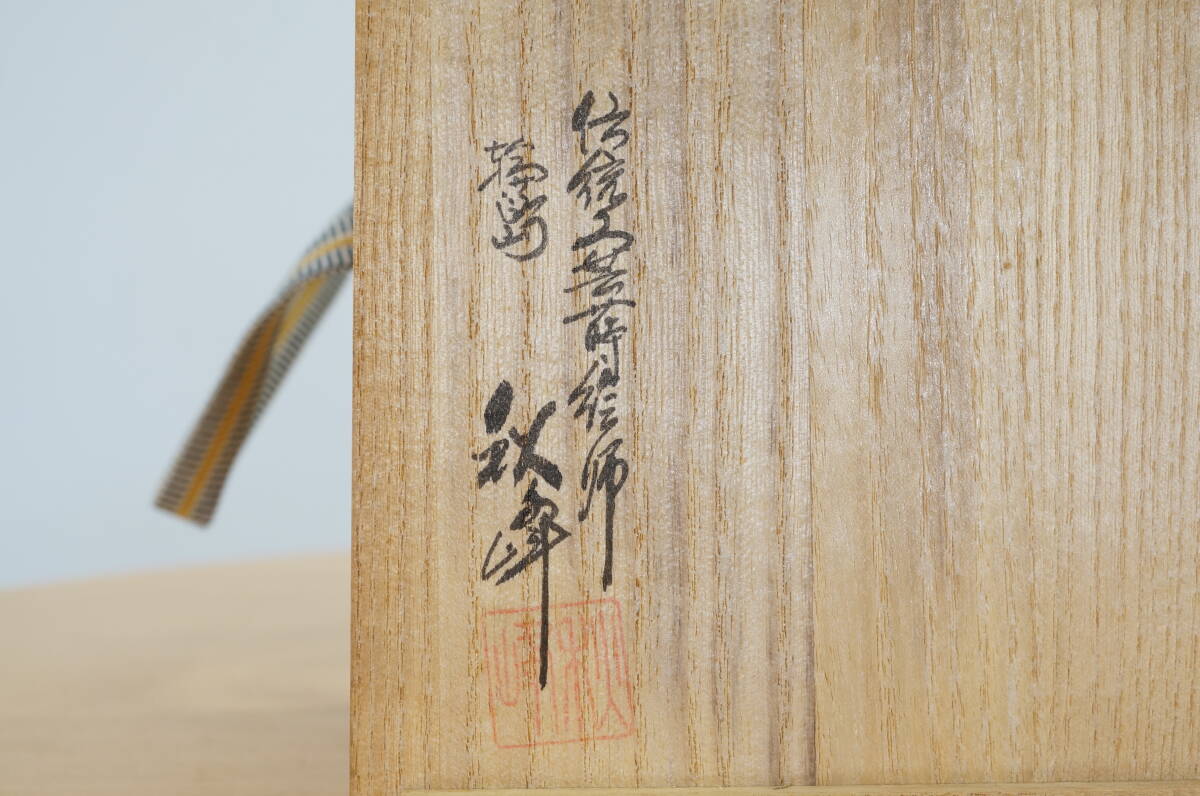 伝統工芸蒔絵師
輪島
秋峰
秋峰